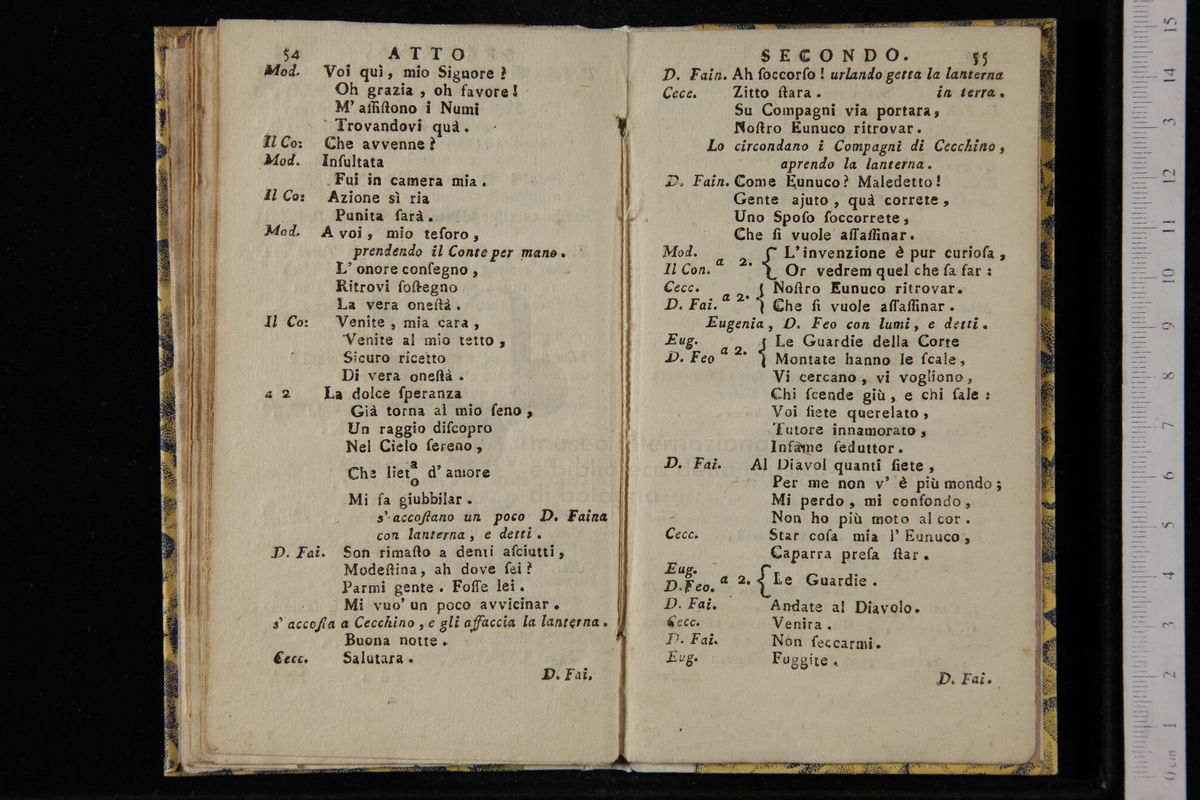 54 ATTO
Mod. Voi quì, mio Signore?
Oh grazia, oh favore!
M' aſſiſtono i Numi
Trovandovi quà.
Il Co: Che avvenne?
Mod. Inſultata
Fui in camera mia.
Il Co: Azione sì ria
Punita ſarà.
Mod. A voi, mio teſoro,
prendendo il Conte per mano.
L' onore conſegno,
Ritrovi ſoſtegno
La vera oneſtà.
Il Co: Venite, mia cara,
Venite al mio tetto,
Sicuro ricetto
Di vera oneſtà.
a 2 La dolce ſperanza
Già torna al mio ſeno,
Un raggio diſcopro
Nel Cielo ſereno,
Che liet a/o d' amore
Mi fa giubbilar.
s' accoſtano un poco D. Faina
con lanterna, e detti.
D. Fai. Son rimaſto a denti aſciutti,
Modeſtina, ah dove ſei?
Parmi gente. Foſſe lei.
Mi vuo' un poco avvicinar.
s' accoſta a Cecchino, e gli affaccia la lanterna.
Buona notte.
Cecc. Salutara.
D. Fai.
SECONDO. 55
D. Fain. Ah ſoccorſo! urlando getta la lanterna
Cecc. Zitto ſtara. in terra.
Su Compagni via portara,
Noſtro Eunuco ritrovar.
Lo circondano i Compagni di Cecchino,
aprendo la lanterna.
D. Fain. Come Eunuco? Maledetto!
Gente ajuto, quà correte,
Uno Spoſo ſoccorrete,
Che ſi vuole aſſaſſinar.
Mod. a 2. { L' invenzione è pur curioſa,
Il Con. Or vedrem quel che ſa far:
Cecc. a 2. { Noſtro Eunuco ritrovar.
D. Fai. Che ſi vuole aſſaſſinar.
Eugenia, D. Feo con lumi, e detti.
Eug. a 2. { Le Guardie della Corte
D. Feo Montate hanno le ſcale,
Vi cercano, vi vogliono,
Chi ſcende giù, e chi ſale:
Voi ſiete querelato,
Tutore innamorato,
Infame ſeduttor.
D. Fai. Al Diavol quanti ſiete,
Per me non v' è più mondo;
Mi perdo, mi confondo,
Non ho più moto al cor.
Cecc. Star coſa mia l' Eunuco,
Caparra preſa ſtar.
Eug.
D. Feo. a 2. { Le Guardie.
D. Fai. Andate al Diavolo.
Cecc. Venira.
D. Fai. Non ſeccarmi.
Eug. Fuggite.
D. Fai.